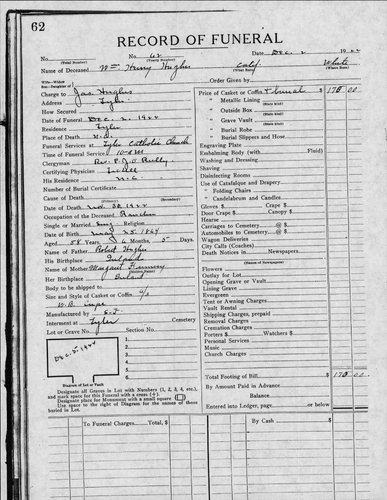 62
RECORD OF FUNERAL
No. 62 Date Dec. 2 1922
(Total Number) (Yearly Number)
Name of Deceased Wm. Henry Hughes Calif. White
(What Race)
Wife—Widow
Son—Daughter of
Order Given by
Charge to Jas. Hughes
Address Tyler
How Secured
Date of Funeral Dec. 2, 1922
Residence Tyler
Place of Death
Funeral Services at Tyler Catholic Church
Time of Funeral Service 10 AM
Clergyman Rev. P. J. O'Reilly
Certifying Physician
His Residence
Number of Burial Certificate
Cause of Death
(Primary) (Secondary)
Date of Death Nov. 30, 1922
Occupation of the Deceased Rancher
Single or Married Sing. Religion
Date of Birth May 25, 1864
Aged 58 Years 6 Months 5 Days
Name of Father Robt Hughes
His Birthplace Ireland
Name of Mother Margaret Flannery
Her Birthplace Ireland
Body to be shipped to
Size and Style of Casket or Coffin 6/3
Manufactured by
Interment at Tyler Cemetery
Lot or Grave No. Section No.
Dec. 2, 1922
1.
2.
3.
4.
5.
6.
7.
Diagram of Lot or Vault
Designate all Graves in Lot with Numbers (1, 2, 3, 4, etc.), and mark space for this Funeral with a cross (+).
Designate place for Monument with a small square
Use space to right of Diagram for the names of those buried in Lot.
Price of Casket or Coffin & burial $ 170 00
" Metallic Lining
(State Kind)
" Outside Box
(State Kind)
" Grave Vault
(State Kind)
" Burial Robe
" Burial Slippers and Hose
Engraving Plate
Embalming Body (with Fluid)
Washing and Dressing
Shaving
Disinfecting Rooms
Use of Catafalque and Drapery
" Folding Chairs
" Candelabrum and Candles
Gloves $ Crape $
Door Crape $ Canopy $
Hearse
Carriages to Cemetery @ $
Automobiles to Cemetery @ $
Wagon Deliveries
City Calls (Coaches)
Death Notices in Newspapers
(Names of Newspapers)
Flowers
Outlay for Lot
Opening Grave or Vault
Lining Grave
Evergreens
Tent or Awning Charges
Vault Rental
Shipping Charges, prepaid
Removal Charges
Cremation Charges
Porters $ Watchers $
Personal Services
Music
Church Charges
Total Footing of Bill $ 170 00
By Amount Paid in Advance
Balance
Entered into Ledger, page or below
To Funeral Charges, Total By Cash